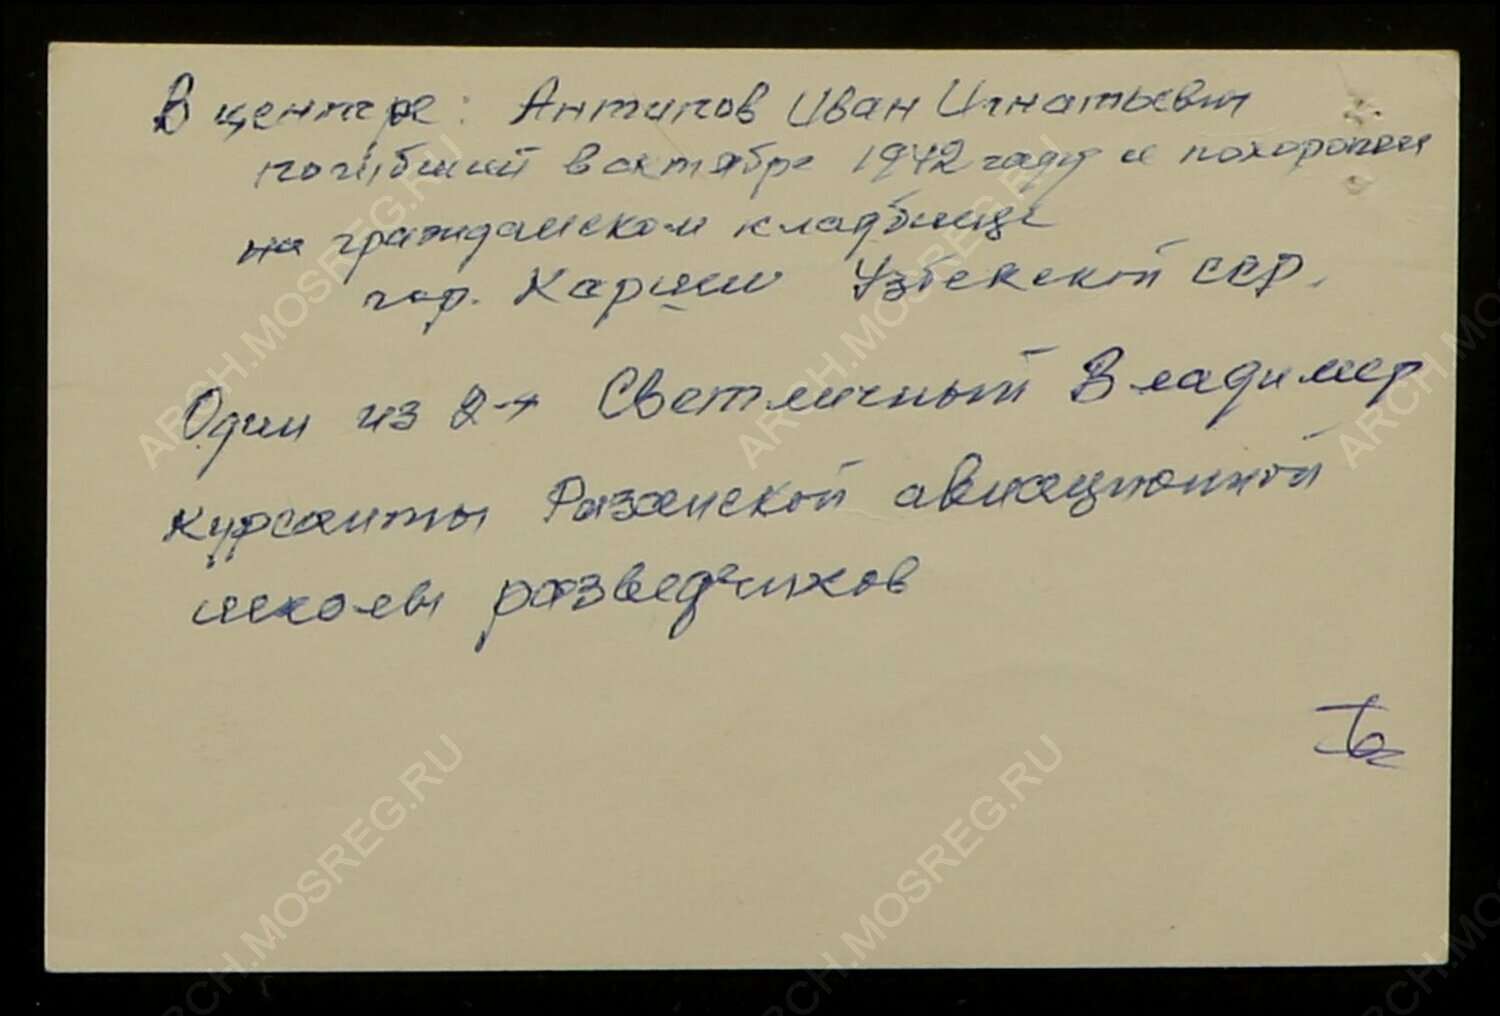 В центре: Антипов Иван Игнатьевич
погибший в октябре 1942 году и похоронен
на гражданском кладбище
гор. Карши Узбекской ССР.
Один из 2-х Светличный Владимир
курсанты Рязанской авиационной
школы разведчиков
ARCH.MOSREG.RU
ARCH.MOSREG.RU
ARCH.MOSREG.RU
ARCH.MOSREG.RU